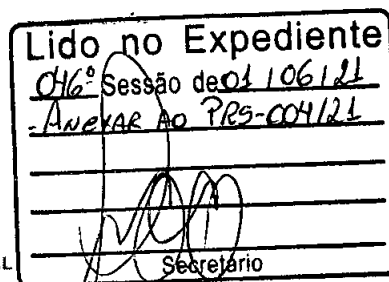 Lido no Expediente
046ª Sessão de 01/06/21
- ANEXAR AO PRS-004/21
Secretário
L